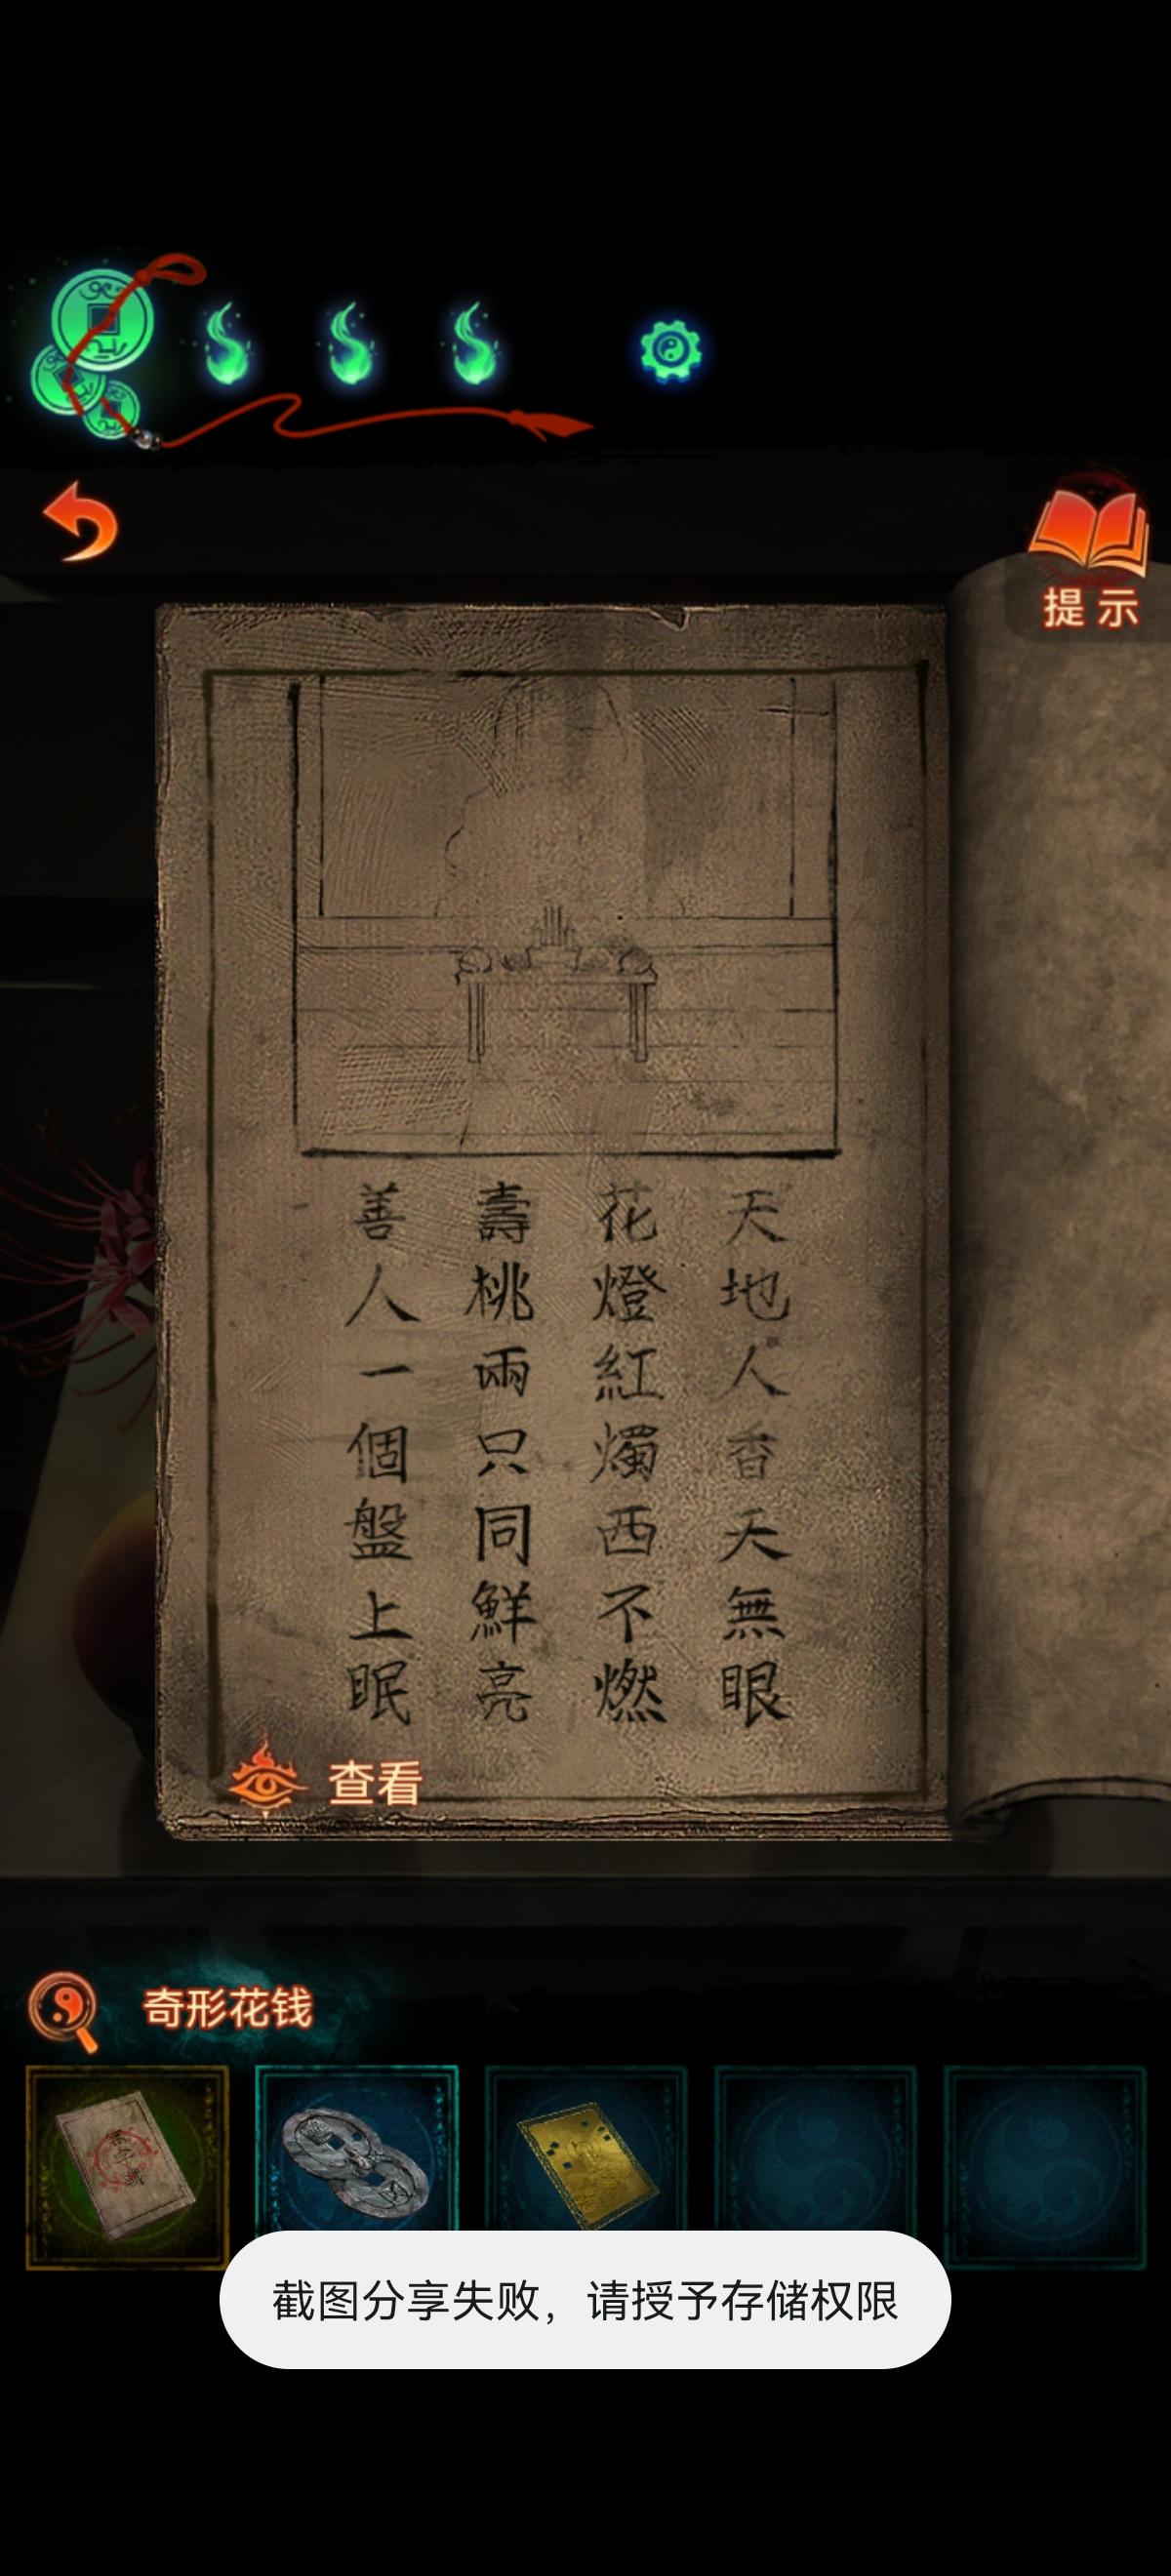 提示
天地人香天無眼
花燈紅燭西不燃
壽桃兩只同鮮亮
善人一個盤上眠
查看
奇形花钱
截图分享失败，请授予存储权限